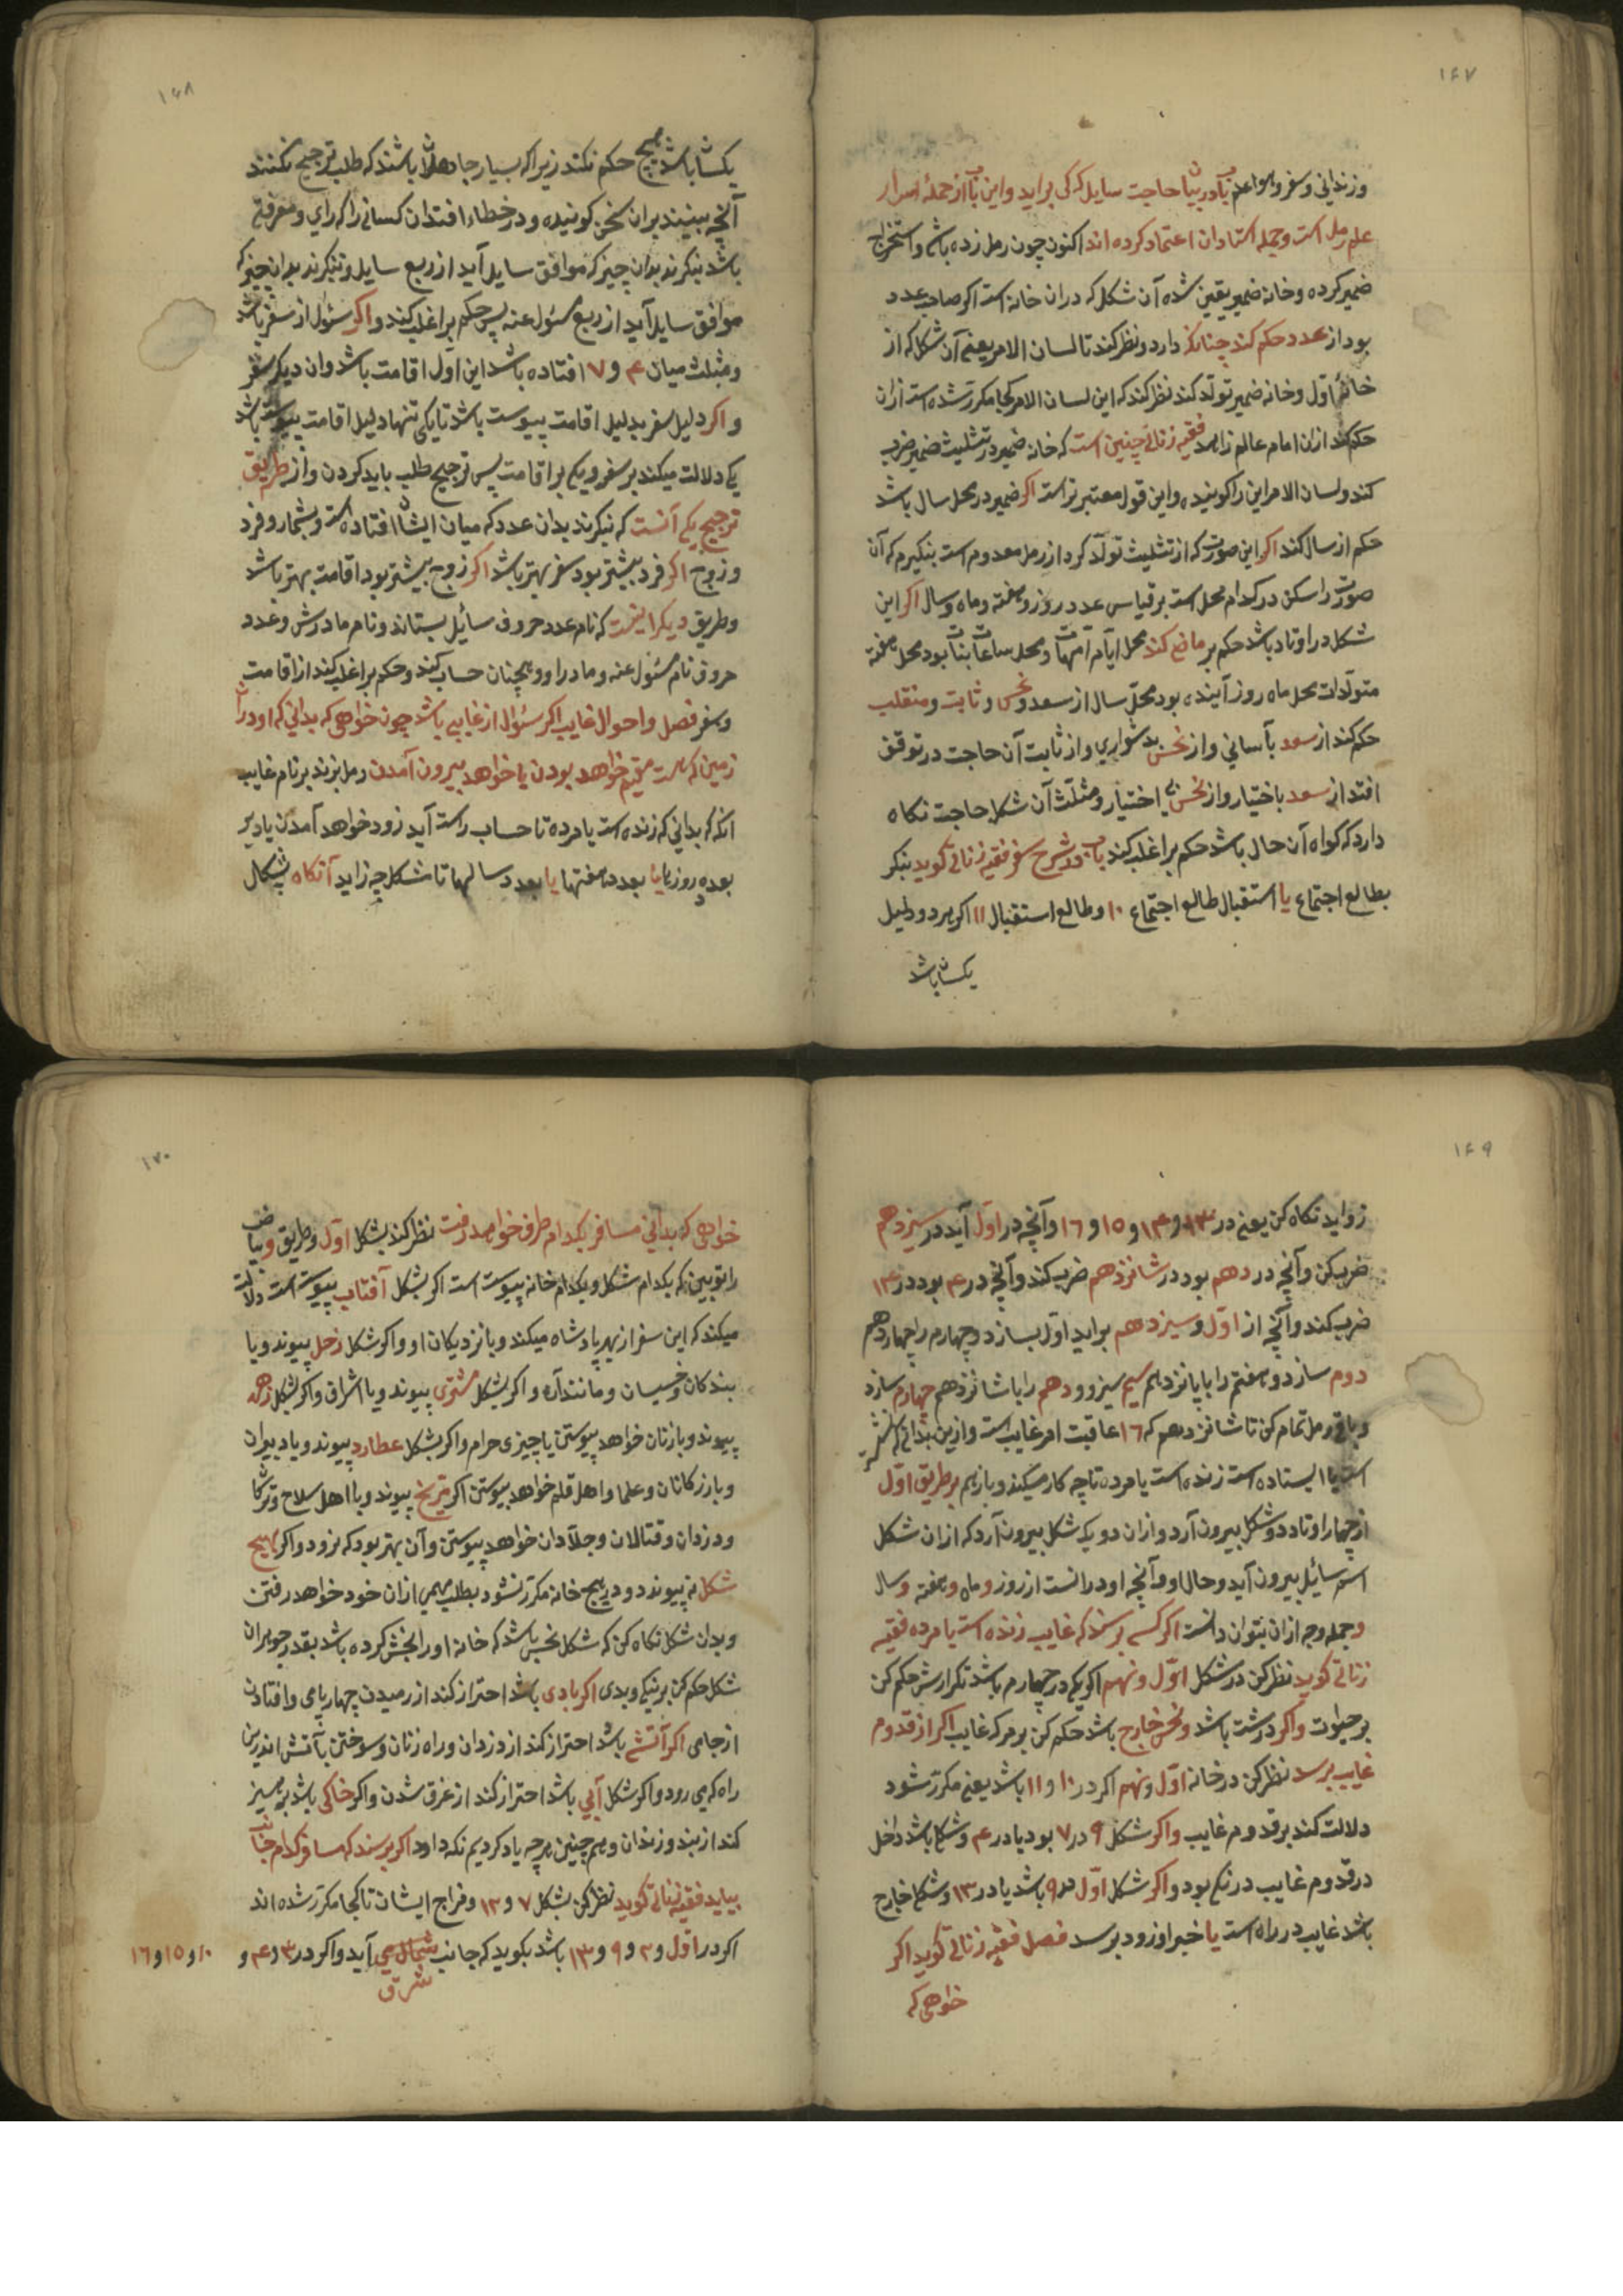 ۱۶۷
وزندانی وسفر ومواعد باب در بیان حاجت سایل که کی براید واین باب از جمله اسرار
علم رمل است وجمله استادان اعتماد کرده اند اکنون چون رمل زده باشی واستخراج
ضمیر کرده وخانه ضمیر یقین شده آن شکل که دران خانه است اکر صاحب عدد
بود از عدد حکم کند چنانکه دارد ونظر کند تا لسان الامر یعنی آن شکل که از
خانهٔ اول وخانه ضمیر تولد کند نظر کند که این لسان الامر کجا مکرر شده است ازان
حکم کند ازان امام عالم زاهد فقیه زناتی چنین است که خانه ضمیر در تثلیث ضمیر ضرب
کند ولسان الامر این را کویند واین قول معتبر تر است اکر ضمیر در محل سال باشد
حکم از سال کند اکر این صورت که از تثلیث تولد کرد از رمل معدوم است بنکیرم که آن
صورت را سکن در کدام محل است بر قیاس عدد روز وهفته وماه وسال اکر این
شکل در اوتاد باشد حکم بر ماضی کند محل ایام امهات ومحل ساعات بنات بود محل هفته
متولدات محل ماه روز آینده بود محل سال از سعد ونحس وثابت ومنقلب
حکم کند از سعد بآسانی واز نحس بدشواری واز ثابت آن حاجت در توقف
افتد از سعد باختیار واز نحس بی اختیار ومثلث آن شکل حاجت نکاه
دارد که کواه آن حال باشد حکم بر اغلب کند باب در شرح سفر فقیه زناتی کوید بنکر
بطالع اجتماع یا استقبال طالع اجتماع ۱۰ وطالع استقبال ۱۱ اکر هر دو دلیل
یکسان باشد
۱۶۸
یکسان باشد هیچ حکم نکند زیرا که بسیار جاهلان باشند که طلب ترجیح نکنند
آنچه ببینند بران سخن کویند ودر خطاء افتد ان کسانی را که رای ومعرفتی
باشد بنکرند بدان چیز که موافق سایل آید از ربع سایل وبنکرند بدان چیز که
موافق سایل آید از ربع مسئول عنه پس حکم بر اغلب کند واکر سئوال از سفر باشد
ومثلث میان ۴ و ۷ افتاده باشد این اول اقامت باشد وان دیکر سفر
واکر دلیل سفر بدلیل اقامت پیوست باشد تا یکی تنها دلیل اقامت پیوست باشد
یکی دلالت میکند بر سفر ویکی بر اقامت پس ترجیح طلب باید کردن واز طریق
ترجیح یکی آنست که بنکرند بدان عدد که میان ایشان افتاده است وبشمارد فرد
وزوج اکر فرد بیشتر بود سفر بهتر باشد اکر زوج بیشتر بود اقامت بهتر باشد
وطریق دیکر اینست که نام عدد حروف سائیل بستاند ونام مادرش وعدد
حروف نام مسئول عنه ومادر او وهمچنان حساب کند وحکم بر اغلب کند از اقامت
وسفر فصل واحوال غایب اکر سئوال از غایبی باشد چون خواهی که بدانی که او دران
زمین که هست مقیم خواهد بودن یا خواهد بیرون آمدن رمل بزند بر نام غایب
انکه که بدانی که زنده است یا مرده تا حساب راست آید زود خواهد آمدن یا دیر
بعدد روزها یا بعدد هفتها یا بعدد سالها تا شکل چه زاید آنکاه بشکال
۱۶۹
زواید نکاه کن یعنی در ۱۳ و ۱۴ و ۱۵ و ۱۶ وآنچه در اول آید در سیزدهم
ضرب کن وآنچه در دهم بود در شانزدهم ضرب کند وآنچه در ۴ بود در ۱۴
ضرب کند وآنچه از اول وسیزدهم براید اول بسازد وچهارم را چهاردهم
دوم سازد وهفتم را با پانزدهم سیم سیزوو دهم را با شانزدهم چهارم سازد
وباقی رمل تمام کن تا شانزدهم که ۱۶ عاقبت امر غایب است وازین بدانی که در سفر
است یا ایستاده است زنده است یا مرده تا چه کار میکند وبازهم بر طریق اول
از چهار اوتاد دو شکل بیرون آرد وازان دو یک شکل بیرون آرد که ازان شکل
اسم سائیل بیرون آید وحال او وآنچه او در انست از روز وماه وهفته وسال
وجمله وجه ازان بتوان دانست اکر کسی پرسد که غایب زنده است یا مرده فقیه
زناتی کوید نظر کن در شکل اول ونهم اکر یکی در چهارم باشد تکرارش حکم کن
بر حیوات واکر در هشت باشد ونحس خارج باشد حکم کن بر مرک غایب اکر از قدوم
غایب پرسد نظر کن در خانه اول ونهم اکر در ۱۰ و ۱۱ باشد یعنی مکرر شود
دلالت کند بر قدوم غایب واکر شکل ۹ در ۷ بود یا در ۴ وشکل باشد داخل
در قدوم غایب درنکی بود واکر شکل اول در ۹ باشد یا در ۱۳ وشکل خارج
باشد غایب در راه است یا خبر او زود برسد فصل فقیه زناتی کوید اکر
خواهی که
۱۷۰
خواهی که بدانی مسافر بکدام طرف خواهد رفت نظر کند بشکل اول وطریق وبیاض
را تو ببین که بکدام شکل وبکدام خانه پیوست است اکر بشکل آفتاب پیوست است دلالت
میکند که این سفر از بهر پادشاه میکند وبا نزدیکان او واکر شکل زحل پیوند وبا
بندکان وخسیسان ومانند آن واکر بشکل مشتری پیوند وبا اشراق واکر بشکل زهره
پیوند وبا زنان خواهد پیوستن یا چیزی حرام واکر بشکل عطارد پیوند وبا دبیران
وبازرکانان وعلما واهل قلم خواهد پیوستن اکر مریخ پیوند وبا اهل سلاح وترکان
ودزدان وقتالان وجلادان خواهد پیوستن وآن بهتر بود که نرود واکر بهیچ
شکل نه پیوندد ودر هیچ خانه مکرر نشود بطلب مهمی ازان خود خواهد رفتن
وبدان شکل نکاه کن که شکل نحس باشد که خانه او را نحس کرده باشد بقدر جوهران
شکل حکم کن بر نیکی وبدی اکر بادی باشد احتراز کند از رمیدن چهارپای وافتادن
از جای اکر آتشی باشد احتراز کند از دزدان وراه زنان وسوختن بآتش اندرین
راه که می رود واکر شکل آبی باشد احتراز کند از غرق شدن واکر خاکی باشد پرهیز
کند از بند وزندان وهم چنین هرچه یاد کردیم نکه دارد اکر پرسند که مسافر کدام جانب
بیاید فقیه زناتی کوید نظر کن بشکل ۷ و ۱۲ وفراج ایشان تا کجا مکرر شده اند
اکر در اول و ۲ و ۹ و ۱۳ باشد بکوید که جانب شمال می آید واکر در ۳ و ۴ و ۱۰ و ۱۵ و ۱۶
شرق